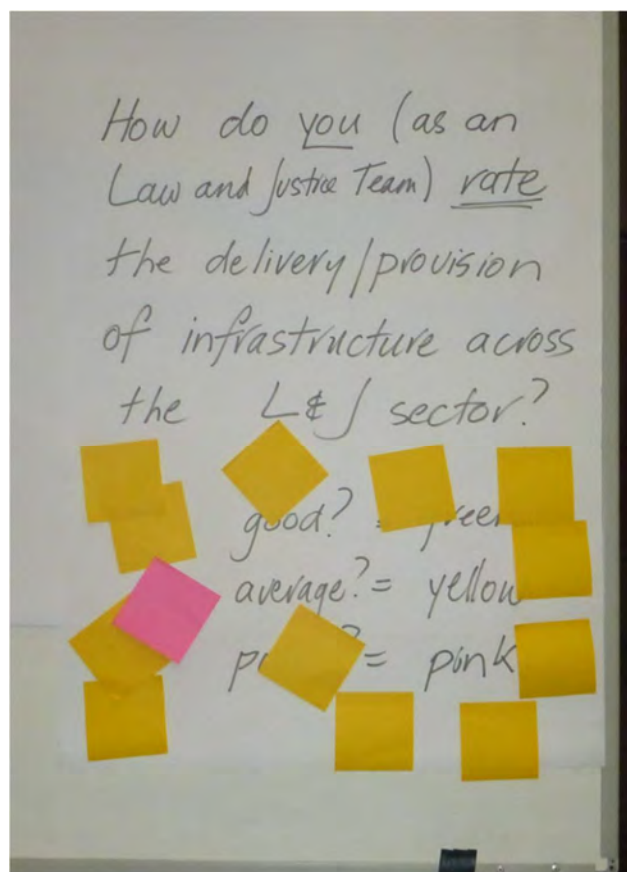 How do you (as an
Law and Justice Team) rate
the delivery/provision
of infrastructure across
the L & J sector?
good? = green
average? = yellow
= pink